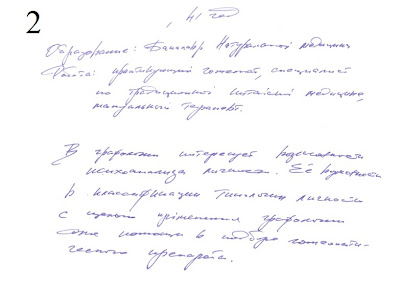 2
, 41 год
Образование: Бакалавр Натуральной медицины
Работа: практикующий гомеопат, специалист
по традиционной китайской медицине,
мануальный терапевт.
В графологии интересует возможность
психоанализа личности. Её возможности
в классификации типологии личности
с целью применения графологии
для помощи в подборе гомеопати-
ческого препарата.